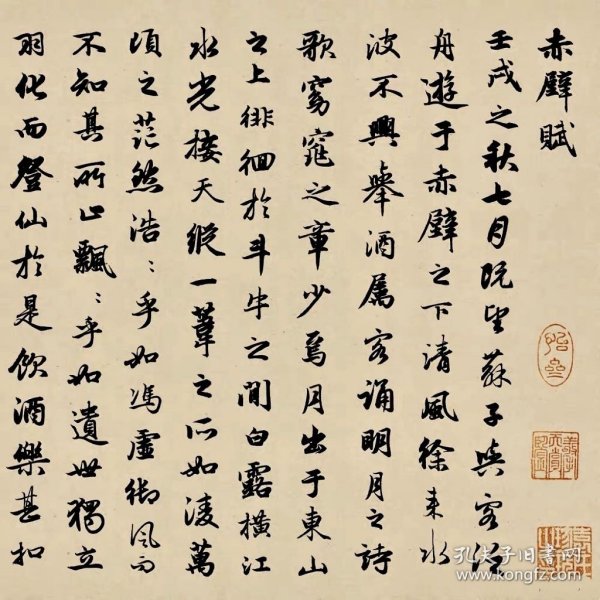 赤壁賦
壬戌之秋七月既望蘇子與客泛
舟遊于赤壁之下清風徐来水
波不興舉酒属客誦明月之詩
歌窈窕之章少焉月出于東山
之上徘徊於斗牛之間白露橫江
水光接天縱一葦之所如凌萬
頃之茫然浩〻乎如馮虛御风而
不知其所止飄〻乎如遺世獨立
羽化而登仙於是飲酒樂甚扣
孔夫子旧书网
www.kongfz.com